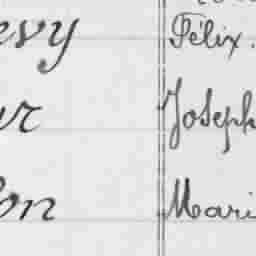 evy Félix.
ur Joseph
on Mari